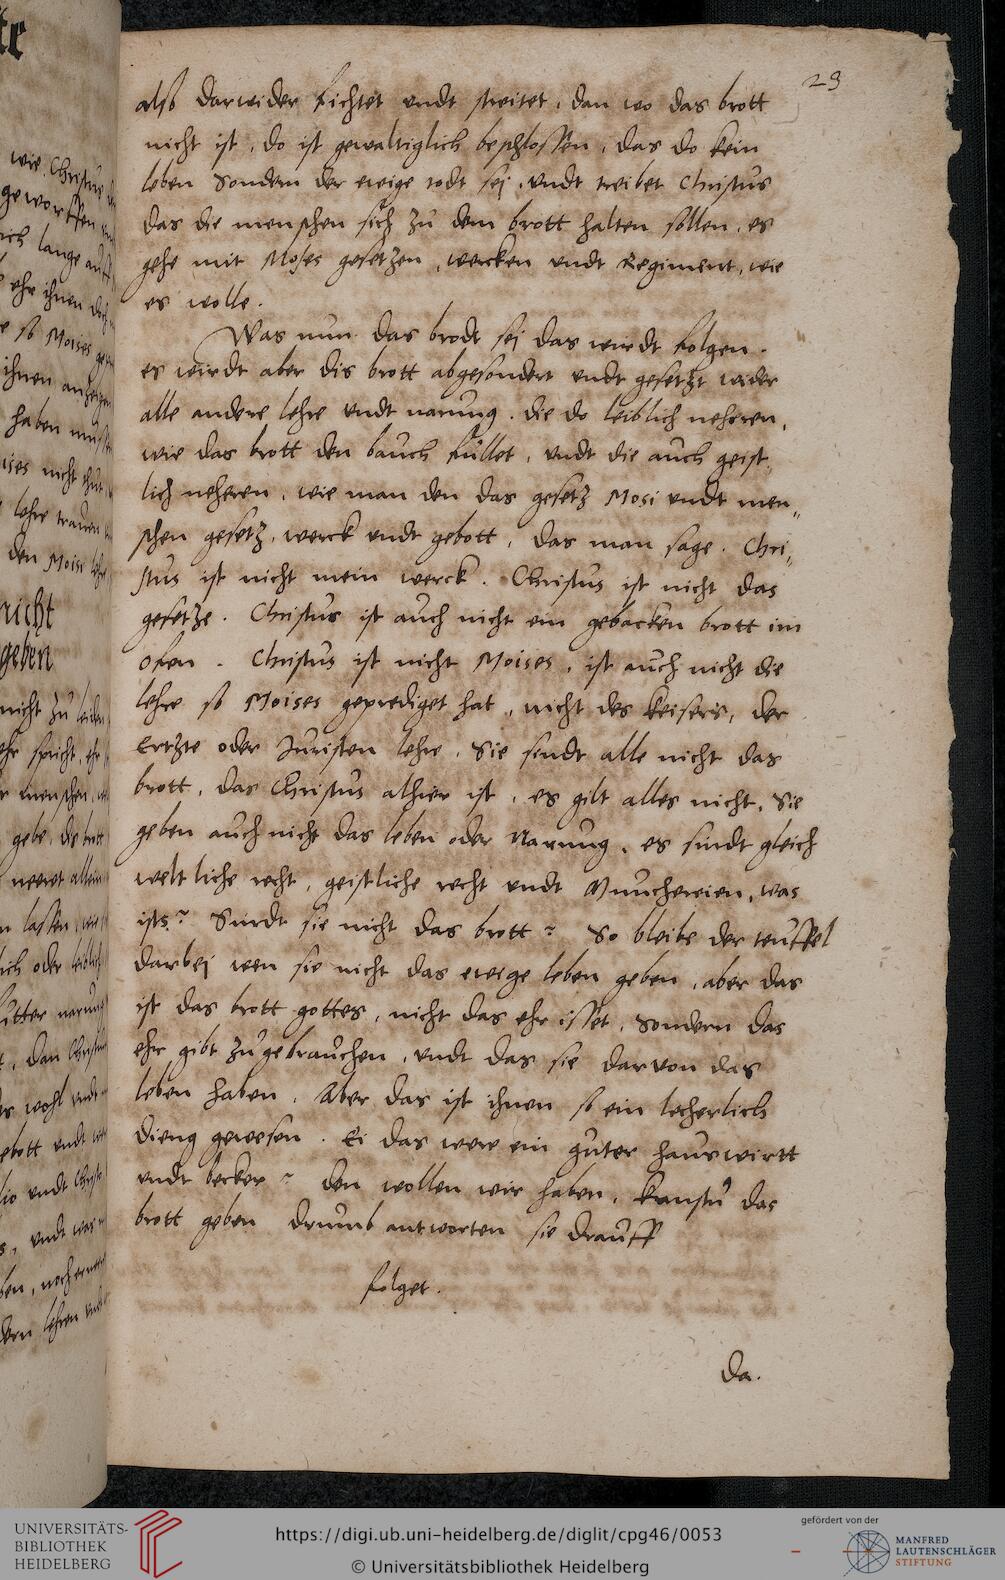 23
also darwider fichtet undt streitet, dan wo das brott
nicht ist, do ist gewaltiglich beschlossen, das do kein
leben Sondern der ewige todt sej, undt treibet Christus
das die menschen sich zu dem brott halten sollen, es
gehe mit Moses gesetzen, wercken undt Regiment, wie
es wolle.
Was nun das brodt sej das wirdt folgen.
es wirdt aber dis brott abgesondert undt gesetzt wider
alle andere lehre undt narung. die do leiblich nehrren,
wie das brott den bauch füllet, undt die auch geist„
lich neheren, wie man den das gesetz Mosi undt men„
schen gesetz, werck undt gebott, das man sage. Chri„
stus ist nicht mein werck. Christus ist nicht das
gesetze. Christus ist auch nicht ein gebacken brott im
ofen. Christus ist nicht Moises, ist auch nicht die
lehre so Moises geprediget hat, nicht des keisers, der
Ertzte oder Juristen lehre. Sie sindt alle nicht das
brott, das Christus alhier ist, es gilt alles nicht, Sie
geben auch nicht das leben oder Narung, es sindt gleich
welt liche recht, geistliche recht undt Munchereien, was
ists? Sindt sie nicht das brott? So bleibe der teuffel
darbej wen sie nicht das ewige leben geben, aber das
ist das brott gottes, nicht das ehr isset, Sondern das
ehr gibt zu gebrauchen, undt das sie darvon das
leben haben. Aber das ist ihnen so ein lecherlich
dieng gewesen. Ei das were ein guter hauswirtt
undt becker? den wollen wir haben, kanstu das
brott geben drumb antworten sie drauff
folget.
da.
UNIVERSITÄTS-
BIBLIOTHEK
HEIDELBERG
https://digi.ub.uni-heidelberg.de/diglit/cpg46/0053
© Universitätsbibliothek Heidelberg
gefördert von der
MANFRED
LAUTENSCHLÄGER
STIFTUNG